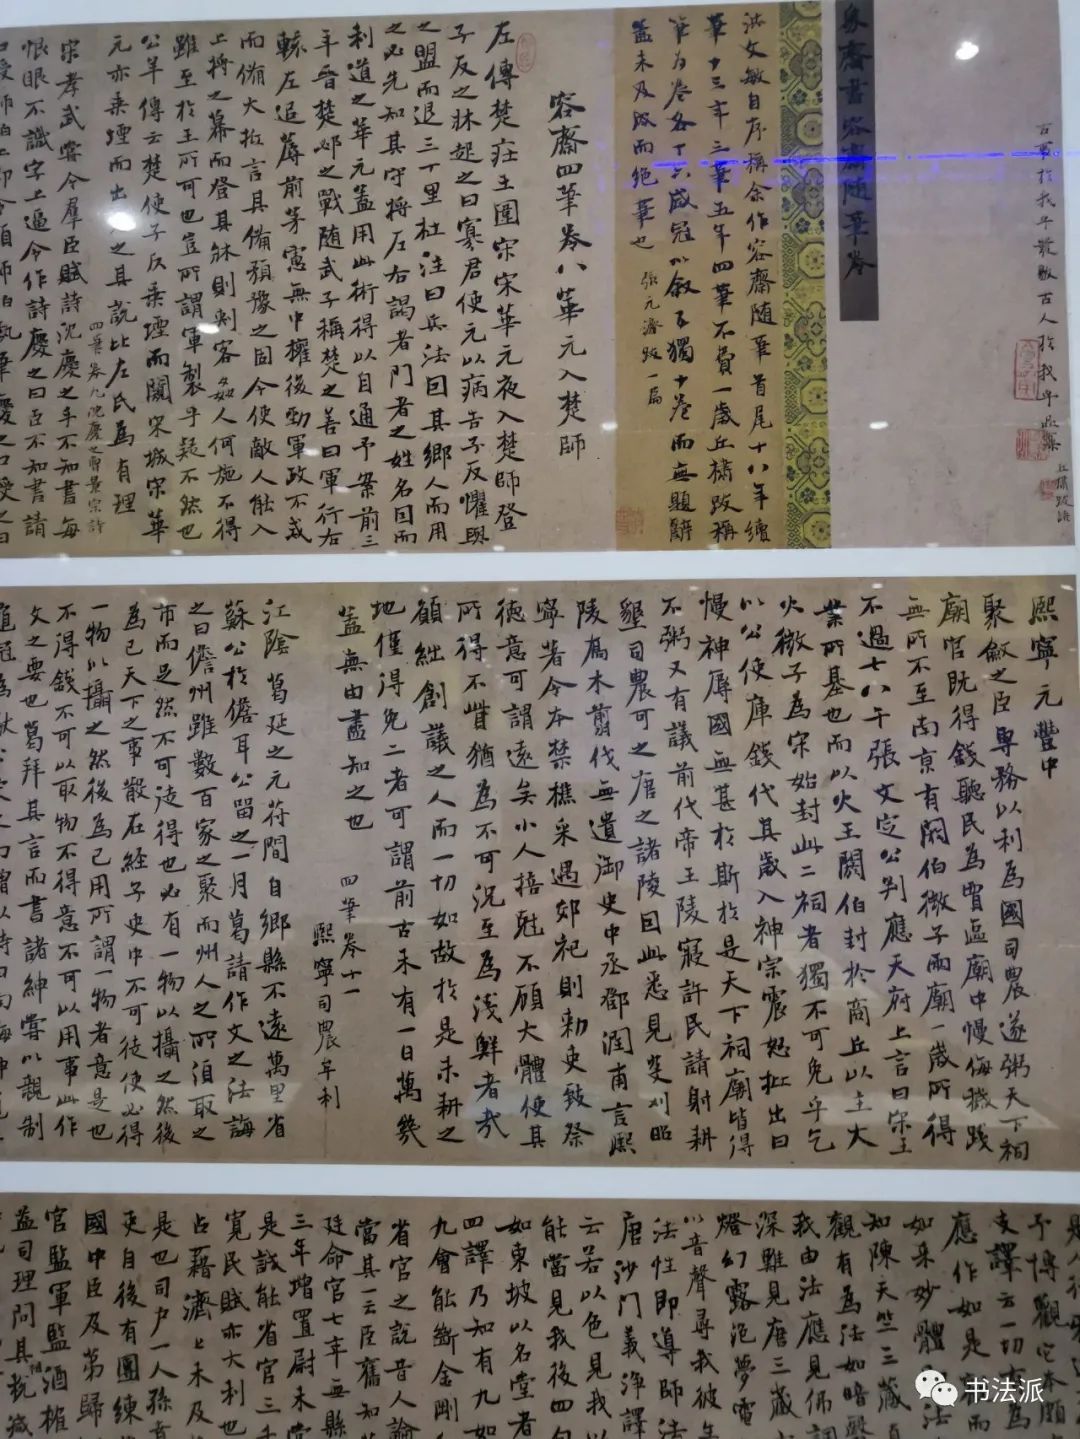 古事於我乎散 古人於我乎
洪文敏自序稱余作容齋隨筆首尾十八年續
筆十三年三筆五年四筆不費一歲丘橚跋稱
筆為卷各十六咸冠以敘五獨十卷而無題辭
蓋未及成而絕筆也 張元濟跋一篇
容齋四筆卷八華元入楚師
左傳楚莊王圍宋宋華元夜入楚師登
子反之牀起之曰寡君使元以病告子反懼與
之盟而退三十里杜注曰兵法因其鄉人而用
之必先知其守將左右謁者門者之姓名因而
利道之華元蓋用此術得以自通予案前三
年晉楚邲之戰隨武子稱楚之善曰軍行右
轅左追蓐前茅慮無中權後勁軍政不戒
而備大抵言其備預豫之固今使敵人能入
上將之幕而登其牀則刺客何施不得
雖至於王所可也豈所謂軍製乎疑不然也
公羊傳云楚使子反乘堙而闚宋城宋華
元亦乘堙而出見之其說比左氏為有理
四筆卷九沈慶之曹景宗詩
宋孝武嘗令羣臣賦詩沈慶之手不知書每
恨眼不識字上逼令作詩慶之曰臣不知書請
熙寧元豐中
聚斂之臣專務以利為國司農遂粥天下祠
廟官既得錢聽民為賈區廟中慢侮穢踐
無所不至南京有閼伯微子兩廟一歲所得
不過七八千張文定公判應天府上言曰宋王
業所基也而以火王閼伯封於商丘以主大
火微子為宋始封此二祠者獨不可免乎乞
以公使庫錢代其歲入神宗震怒批出曰
慢神辱國無甚於斯於是天下祠廟皆得
不粥又有議前代帝王陵寢許民請射耕
墾司農可之唐之諸陵因此悉見芟刈昭
陵喬木翦伐無遺御史中丞鄧潤甫言熙
寧著令本禁樵采遇郊祀則勅吏致祭
德意可謂遠矣小人掊尅不顧大體使其
所得不貲猶為不可況至為淺鮮者哉
願絀創議之人而一切如故於是未耕之
地僅得免二者可謂前古未有一日萬幾
蓋無由盡知之也
四筆卷十一
熙寧司農牟利
江陰葛延之元符間自鄉縣不遠萬里省
蘇公於儋耳公留之一月葛請作文之法誨
之曰儋州雖數百家之聚而州人之所須取之
市而足然不可徒得也必有一物以攝之然後
為己天下之事散在經子史中不可徒使必得
一物以攝之然後為己用所謂一物者意是也
不得錢不可以取物不得意不可以用事此作
文之要也葛拜其言而書諸紳嘗以親製
予博觀它本頗
支譯云一切有為
應作如是
如來妙體
知陳天竺三藏
觀有為法如暗翳
我由法應見佛調
深難見唐三藏
燈幻露泡夢電
以音聲尋我彼
法性即導師法
唐沙門義淨譯
云若以色見我以
能當見我後四句
如東坡以名堂者
四譯乃知有九如
九會能斷金剛
省官之說昔人論
當其一云臣舊知
廷命官七年無縣
三年增置尉未嘗
是誠能省官三
寬民賦亦大利也
占藉濟上未及
是也司戶一人孫
吏自後有團練
國中臣及第歸
官監軍監酒榷
益司理問其
书法派